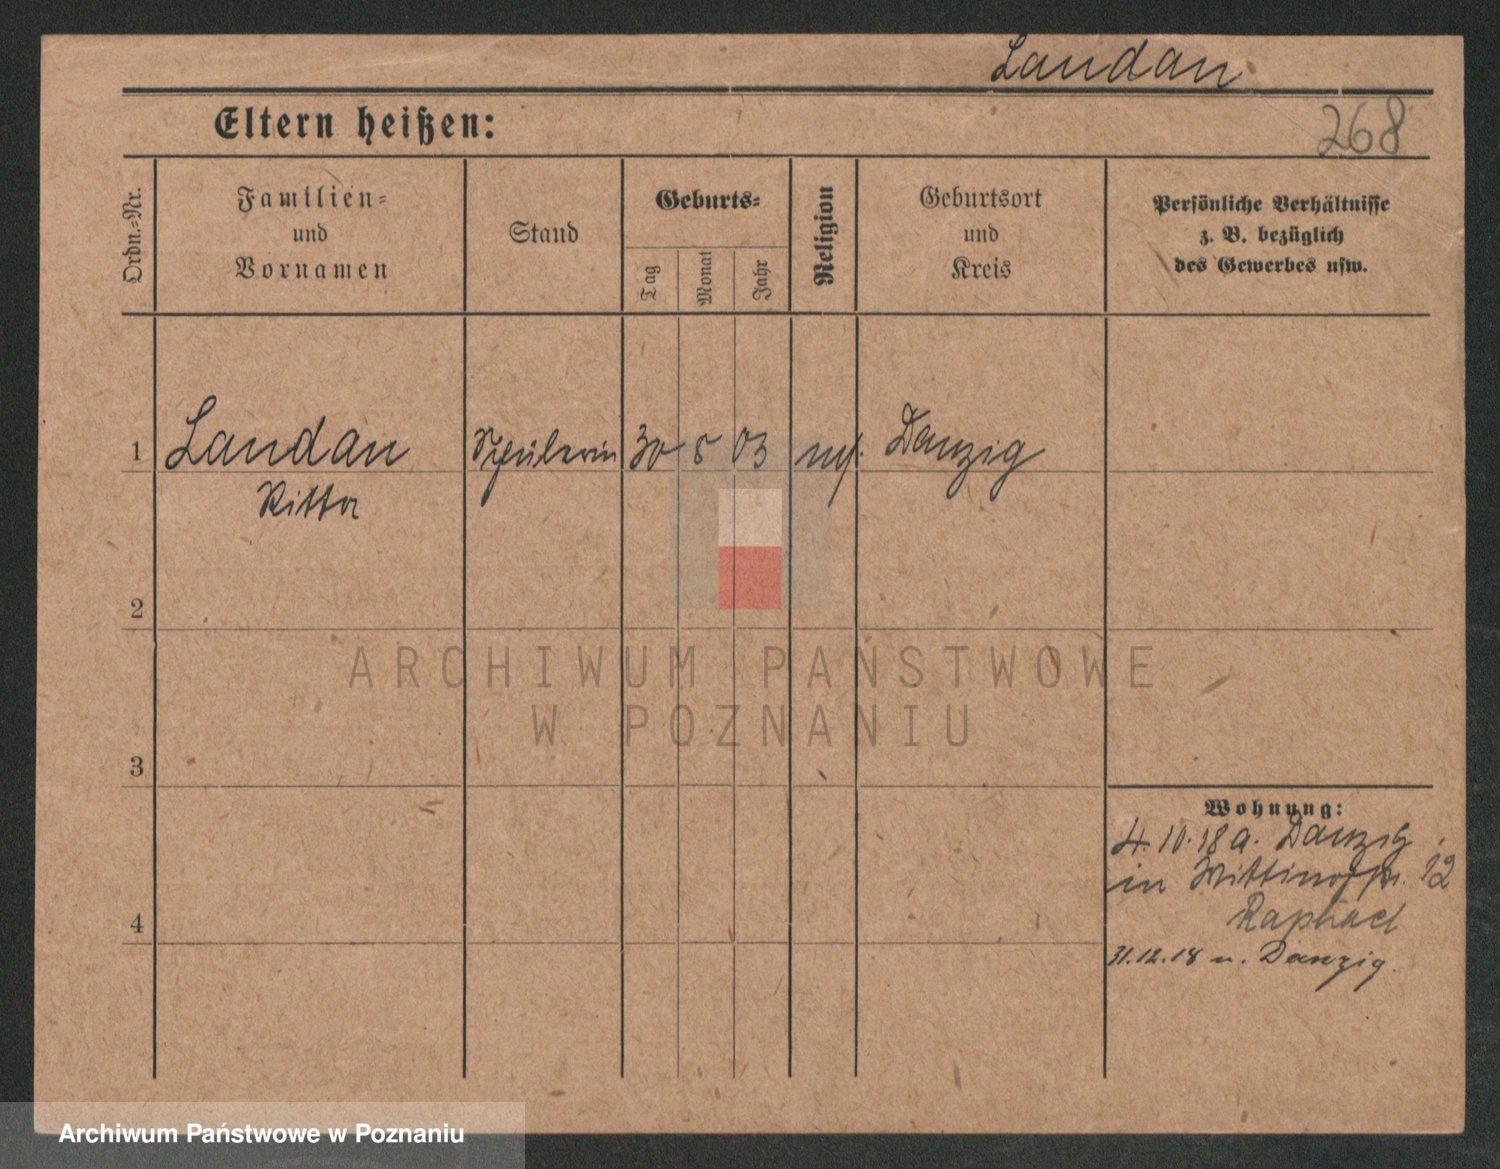 Landau
Eltern heißen:
268
Ordn.-Nr.
Familien-
und
Vornamen
Stand
Geburts-
Tag
Monat
Jahr
Religion
Geburtsort
und
Kreis
Persönliche Verhältnisse
z. B. bezüglich
des Gewerbes usw.
1
Landau
Schülerin
30
5
03
Danzig
Ritta
2
ARCHIWUM PAŃSTWOWE
W POZNANIU
3
Wohnung:
4.10.18 a. Danzig
in 12
Raphael
4
31.12.18 n. Danzig.
Archiwum Państwowe w Poznaniu